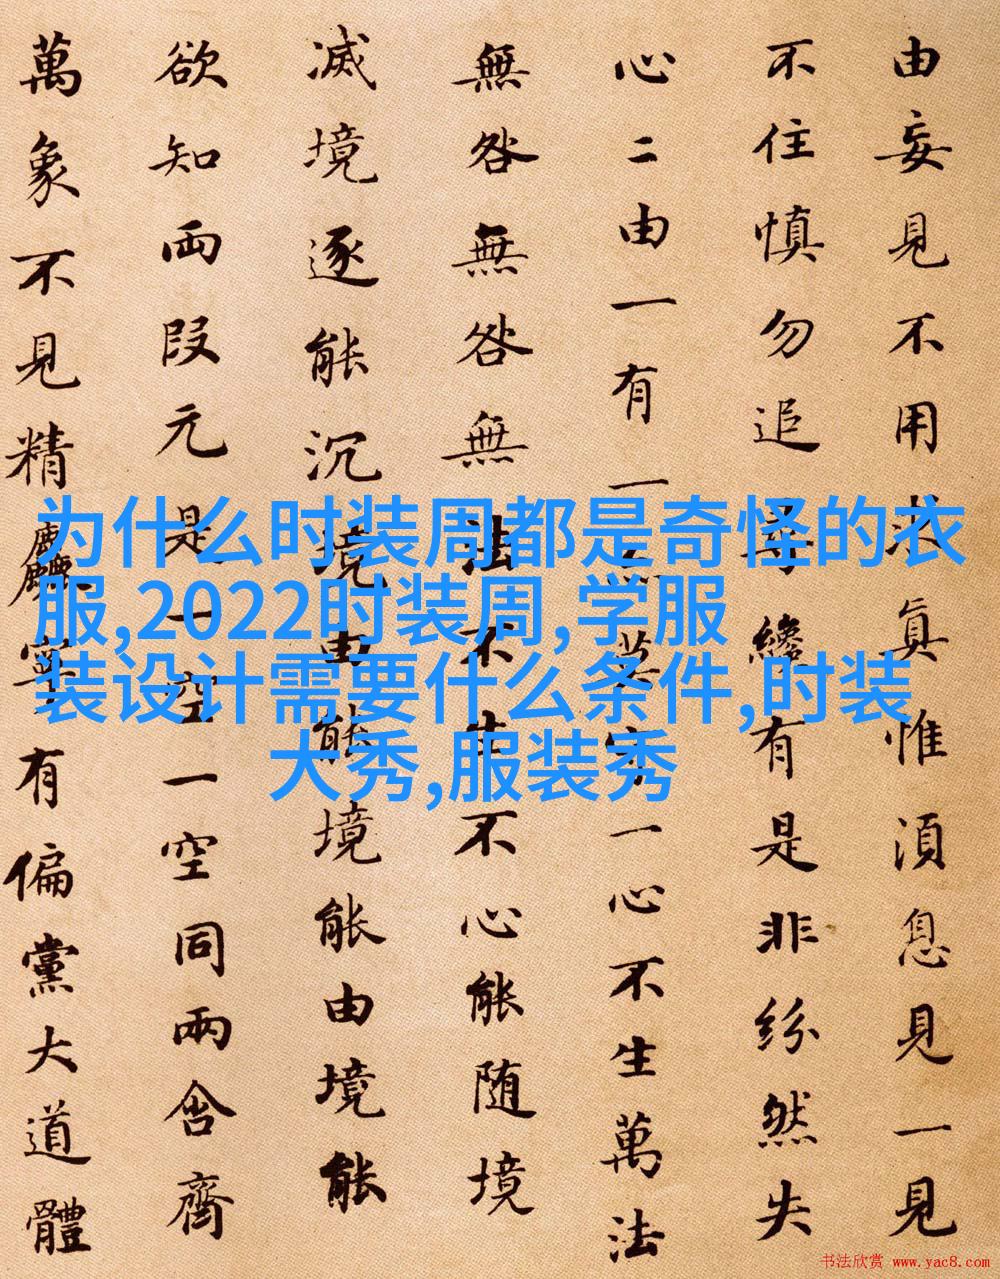 由妄見不用求真惟湏息見一見
不住慎勿追尋纔有是非紛然失
心二由一有一亦莫守一心不生萬法
無咎無咎無法不生不心能随境
滅境逐能沉境由能境能由境能
欲知兩段元是一空一空同兩含齊
萬象不見精麤寧有偏黨大道體
为什么时装周都是奇怪的衣
服,2022时装周,学服
装设计需要什么条件,时装
大秀,服装秀
书法欣赏 www.yac8.com